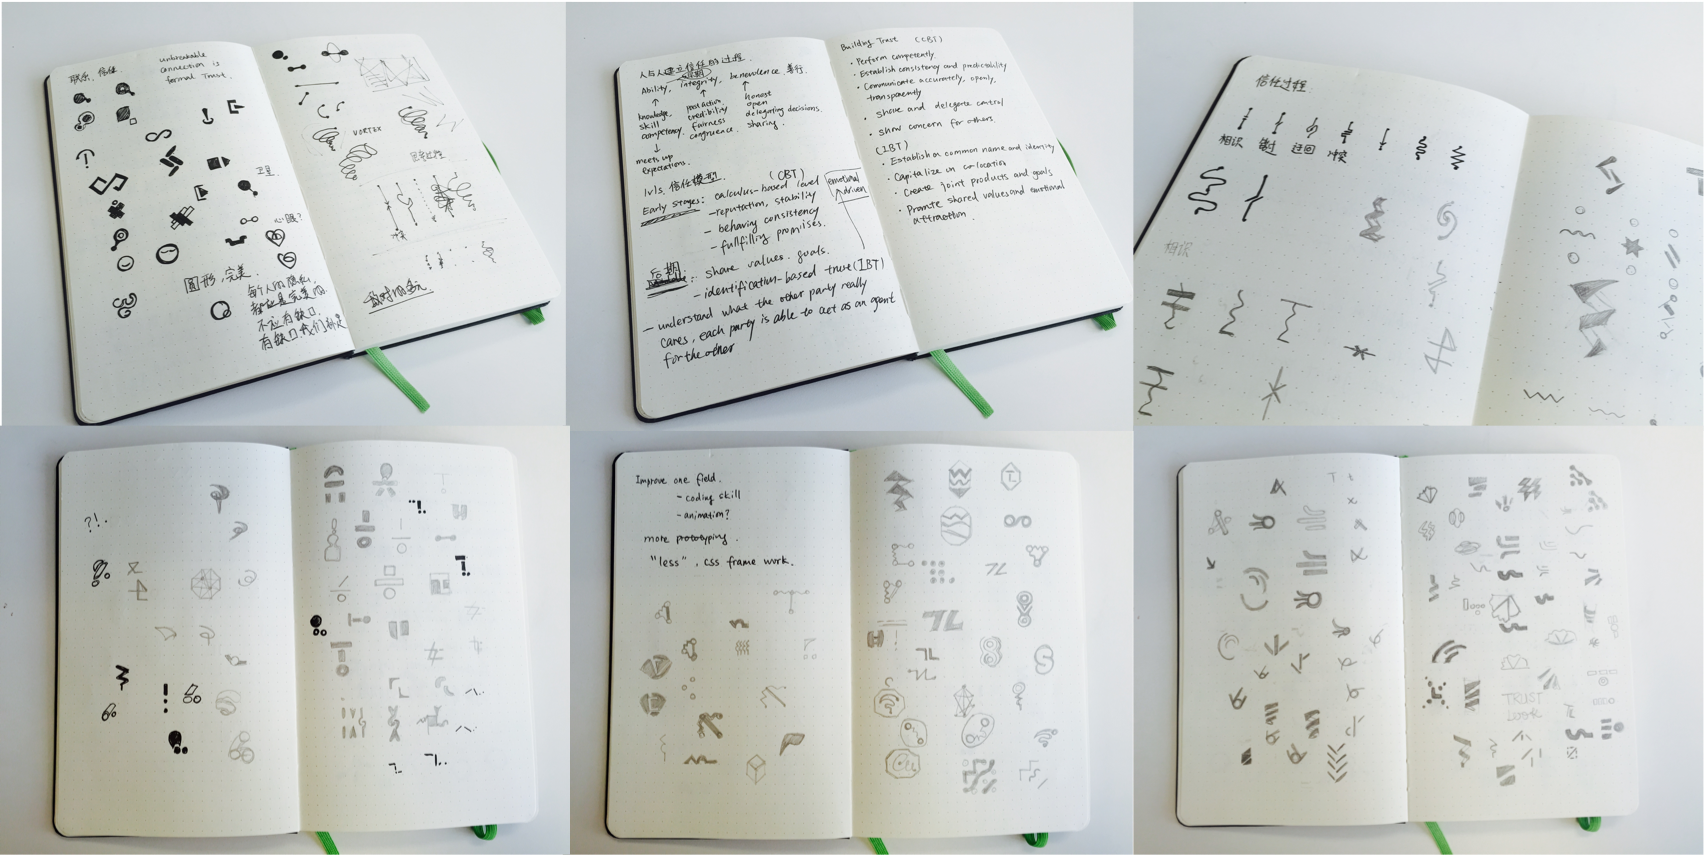 联系、信任
unbreakable
connection is
formal Trust.
卫星
心眼?
圆形,完美.
每个人的隐私,
都是完美的.
不应有缺口.
VORTEX
人与人建立信任的过程.
Ability, integrity, benevolence. 善行.
knowledge, past action. honest
skill credibility open
competency. fairness delegating decisions.
congruence. sharing.
meets up
expectations.
lvls. 信任模型. (CBT)
Early stages: calculus-based level
- reputation, stability
- behaving consistency
- fullfilling promises.
emotional
driven
后期: share values. goals.
- identification-based trust (IBT)
- understand what the other party really
cares, each party is able to act as an agent
for the other
Building Trust (CBT)
• Perform competently.
• Establish consistency and predictability
• Communicate accurately, openly,
transparently
• Share and delegate control.
• Show concern for others.
(IBT)
• Establish a common name and identity
• Capitalize on co-location
• Create joint products and goals
• Promote shared values and emotional
attraction.
信任过程
相识 迂回 冲突
相识
?!.
Improve one field.
- coding skill
- animation?
more prototyping.
"less", css frame work.
TRUST